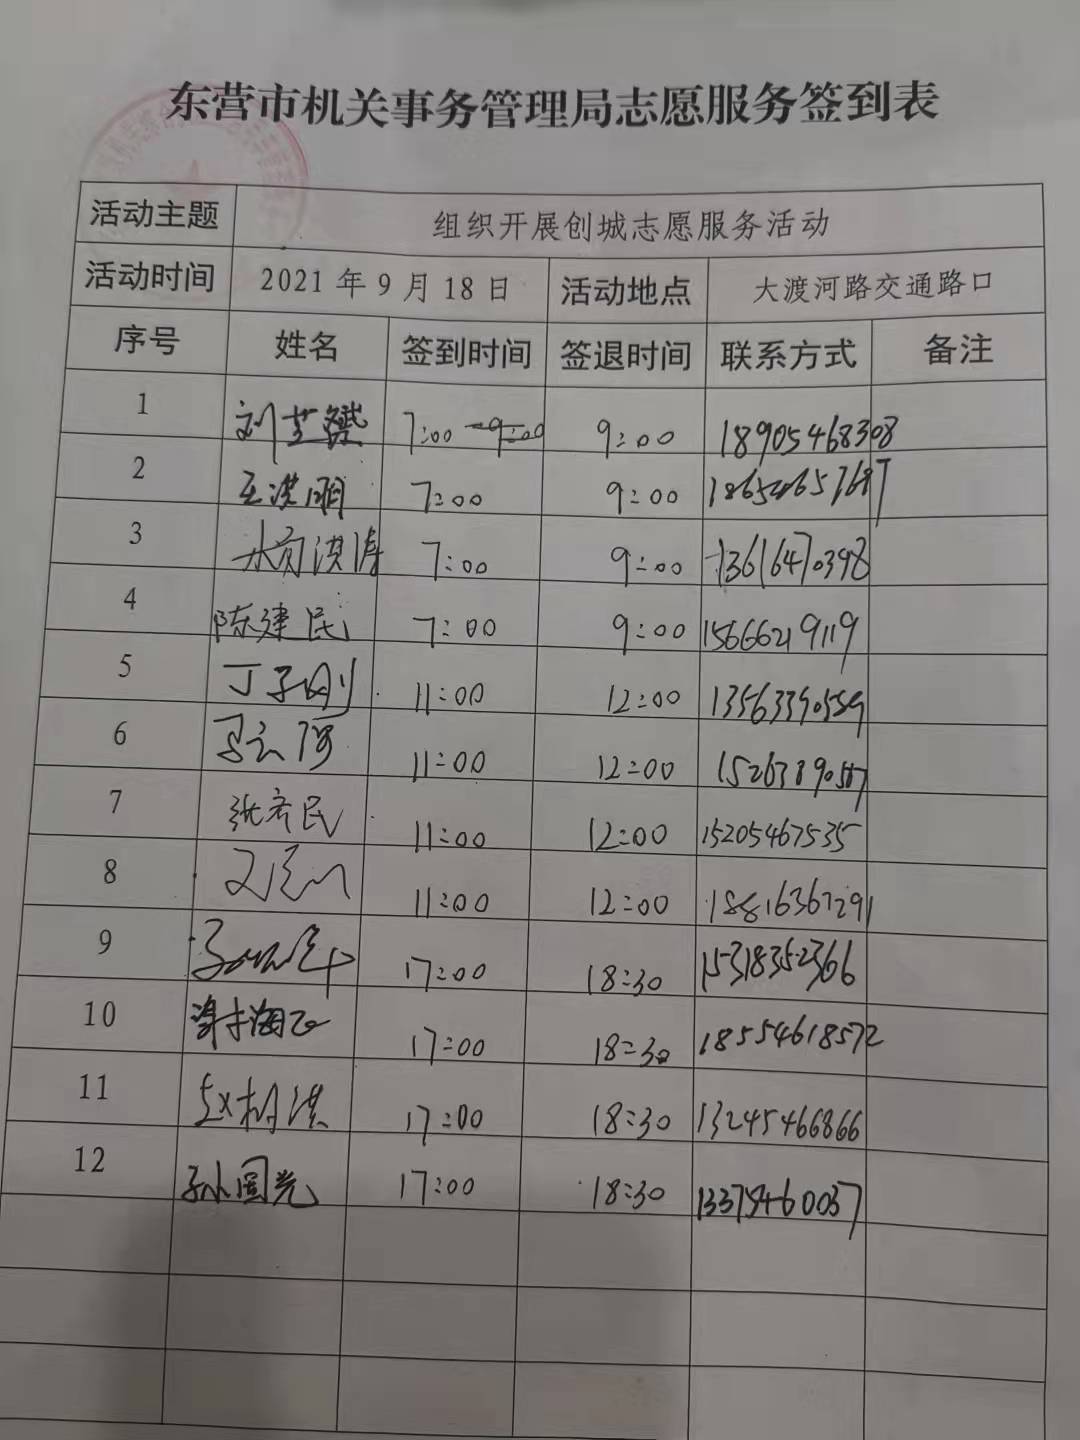 东营市机关事务管理局志愿服务签到表
活动主题 组织开展创城志愿服务活动
活动时间 2021年9月18日 活动地点 大渡河路交通路口
序号 姓名 签到时间 签退时间 联系方式 备注
1 刘 7:00 9:00 18905468308
2 王洪明 7:00 9:00
3 洪涛 7:00 9:00 13616470398
4 陈建民 7:00 9:00 15666219119
5 丁子刚 11:00 12:00 13563390559
6 11:00 12:00 15263890587
7 张彦民 11:00 12:00 15205467535
8 11:00 12:00 18816367291
9 17:00 18:30 15318352366
10 海 17:00 18:30 18554618572
11 赵树洪 17:00 18:30 13245466866
12 孙国光 17:00 18:30 13375460037